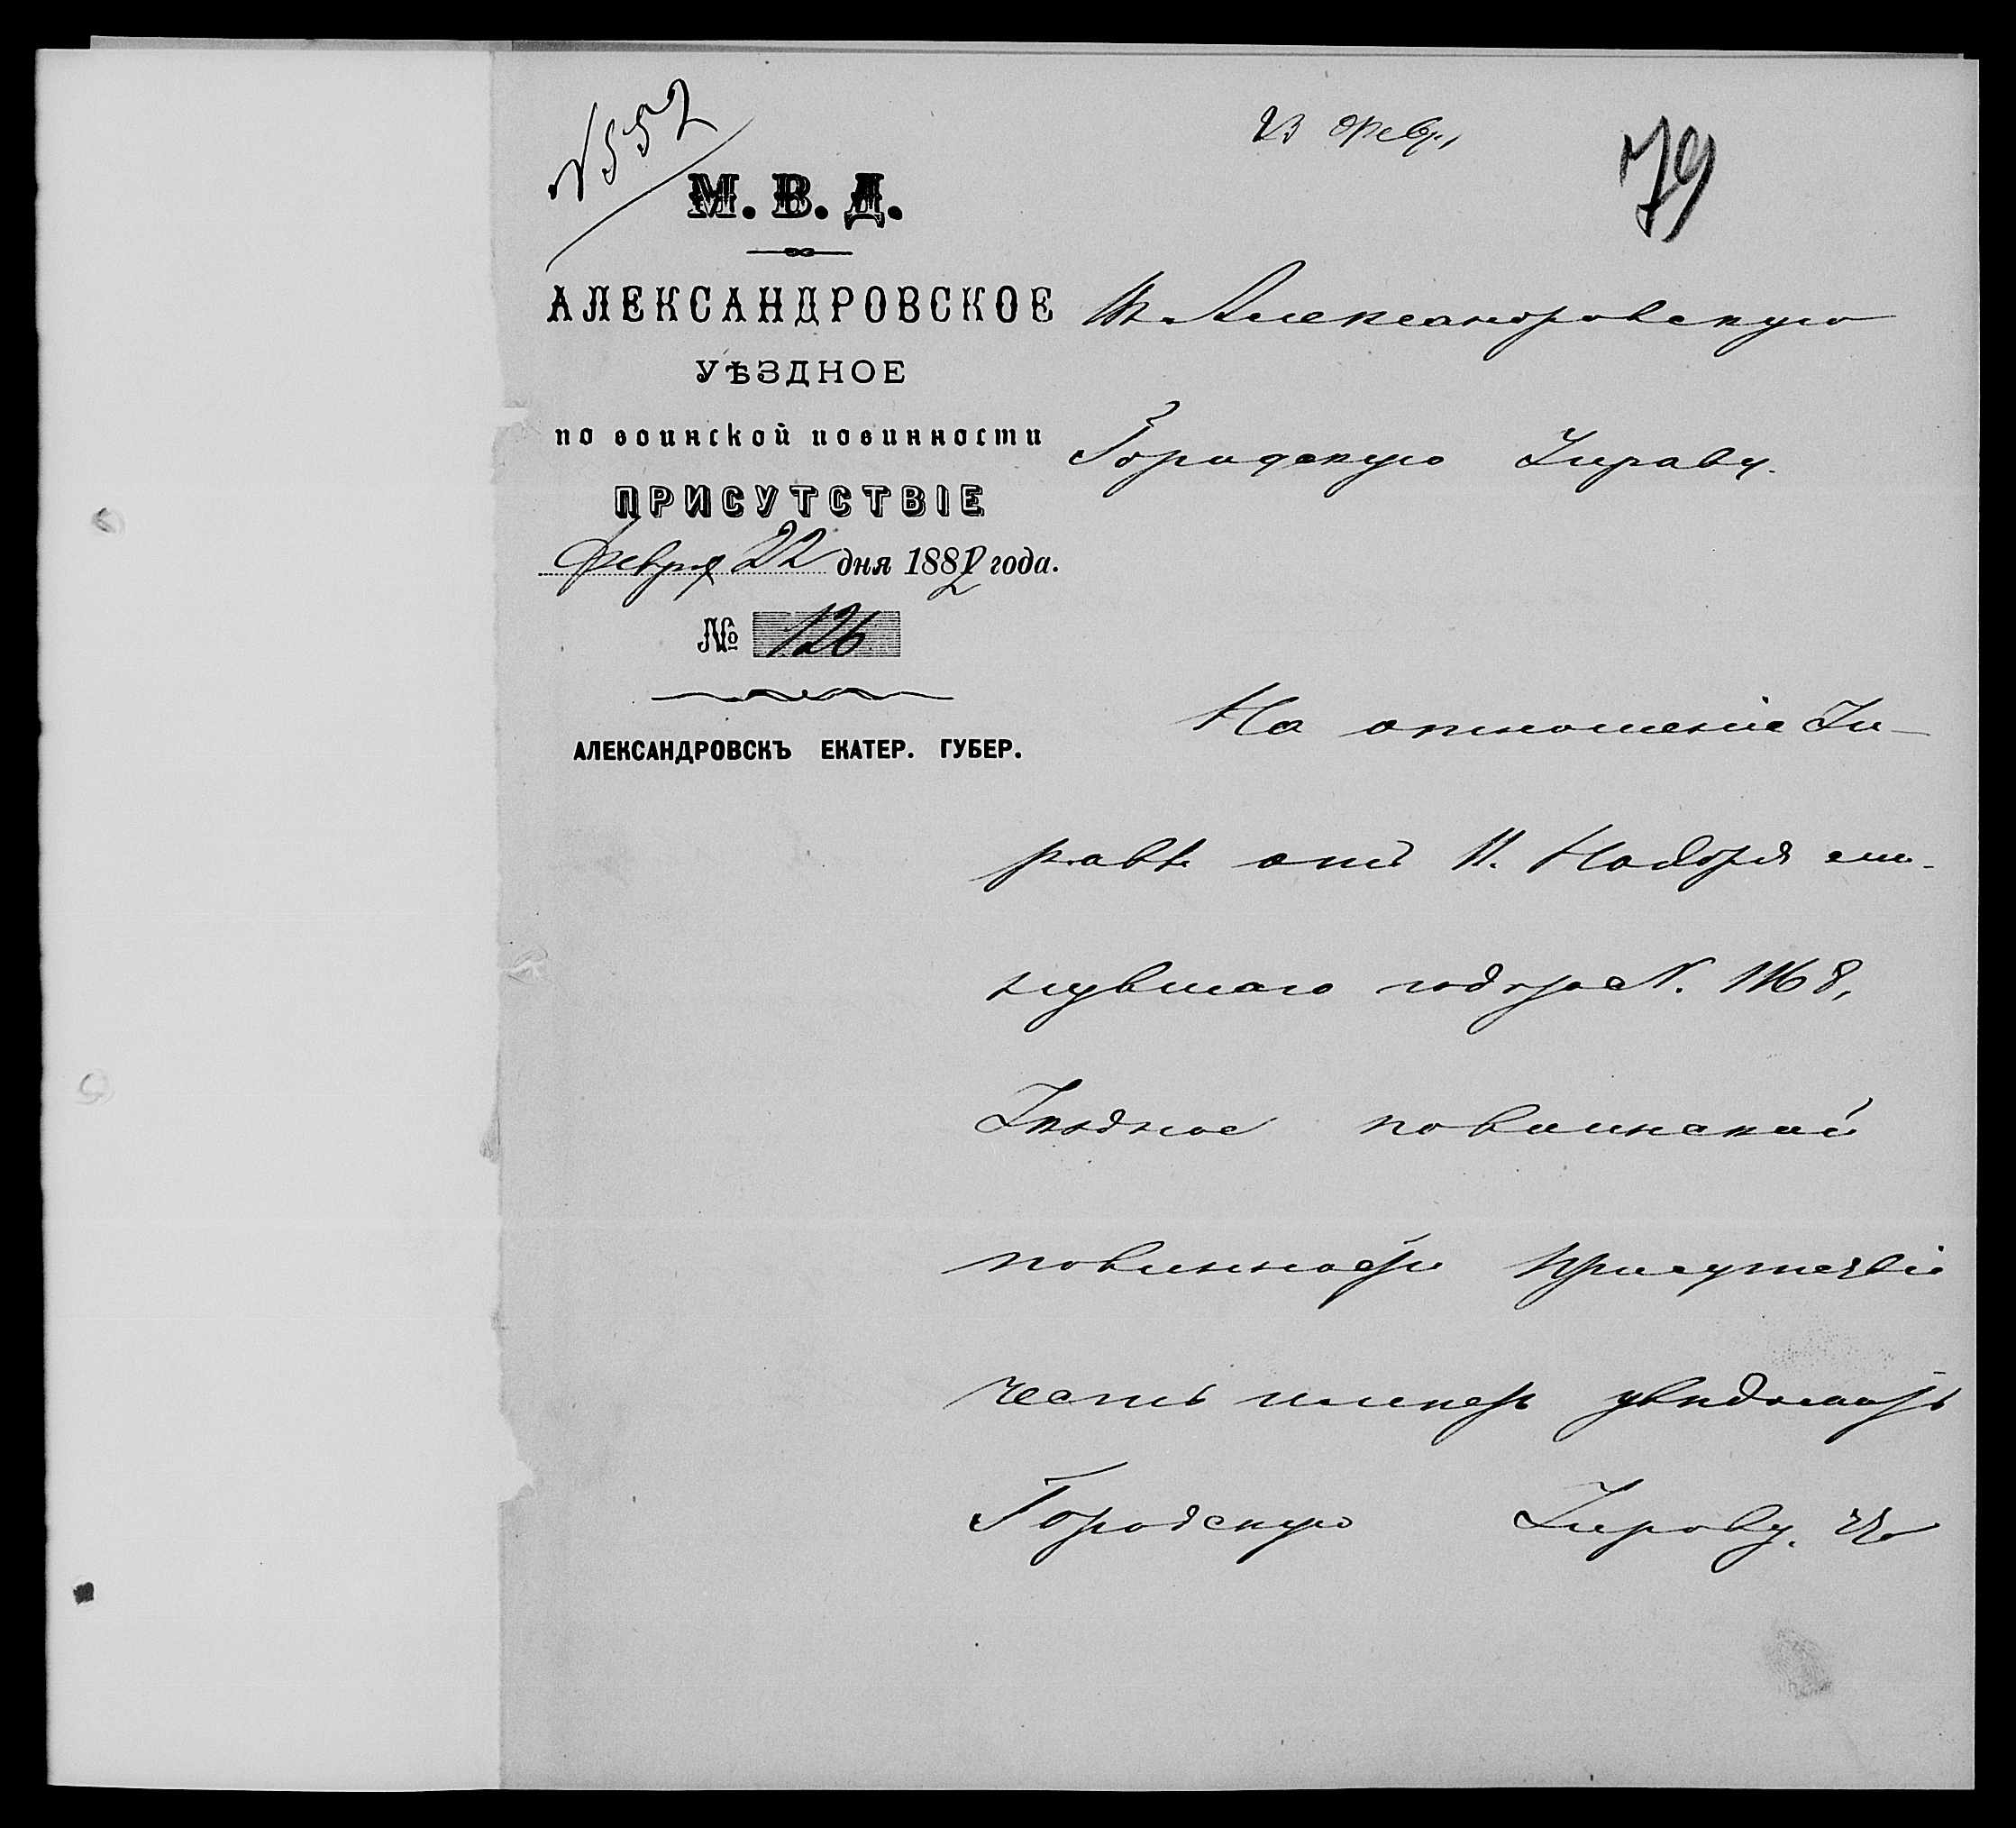 №552
23 Февр.
79
М. В. Д.
АЛЕКСАНДРОВСКОЕ
УѢЗДНОЕ
по воинской повинности
ПРИСУТСТВІЕ
Февраля 22 дня 1882 года.
№ 126
АЛЕКСАНДРОВСКЪ ЕКАТЕР. ГУБЕР.
Въ Александровскую
Городскую Управу.
На отношеніе Уп-
равы отъ 11. Ноября ми-
нувшаго года за N. 1168,
Уѣздное по воинской
повинности Присутствіе
честь имѣетъ увѣдомить
Городскую Управу, что